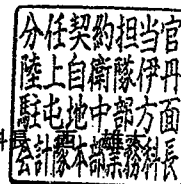 分任契約担当官
陸上自衛隊伊丹
駐屯地中部方面
会計隊本部務科長